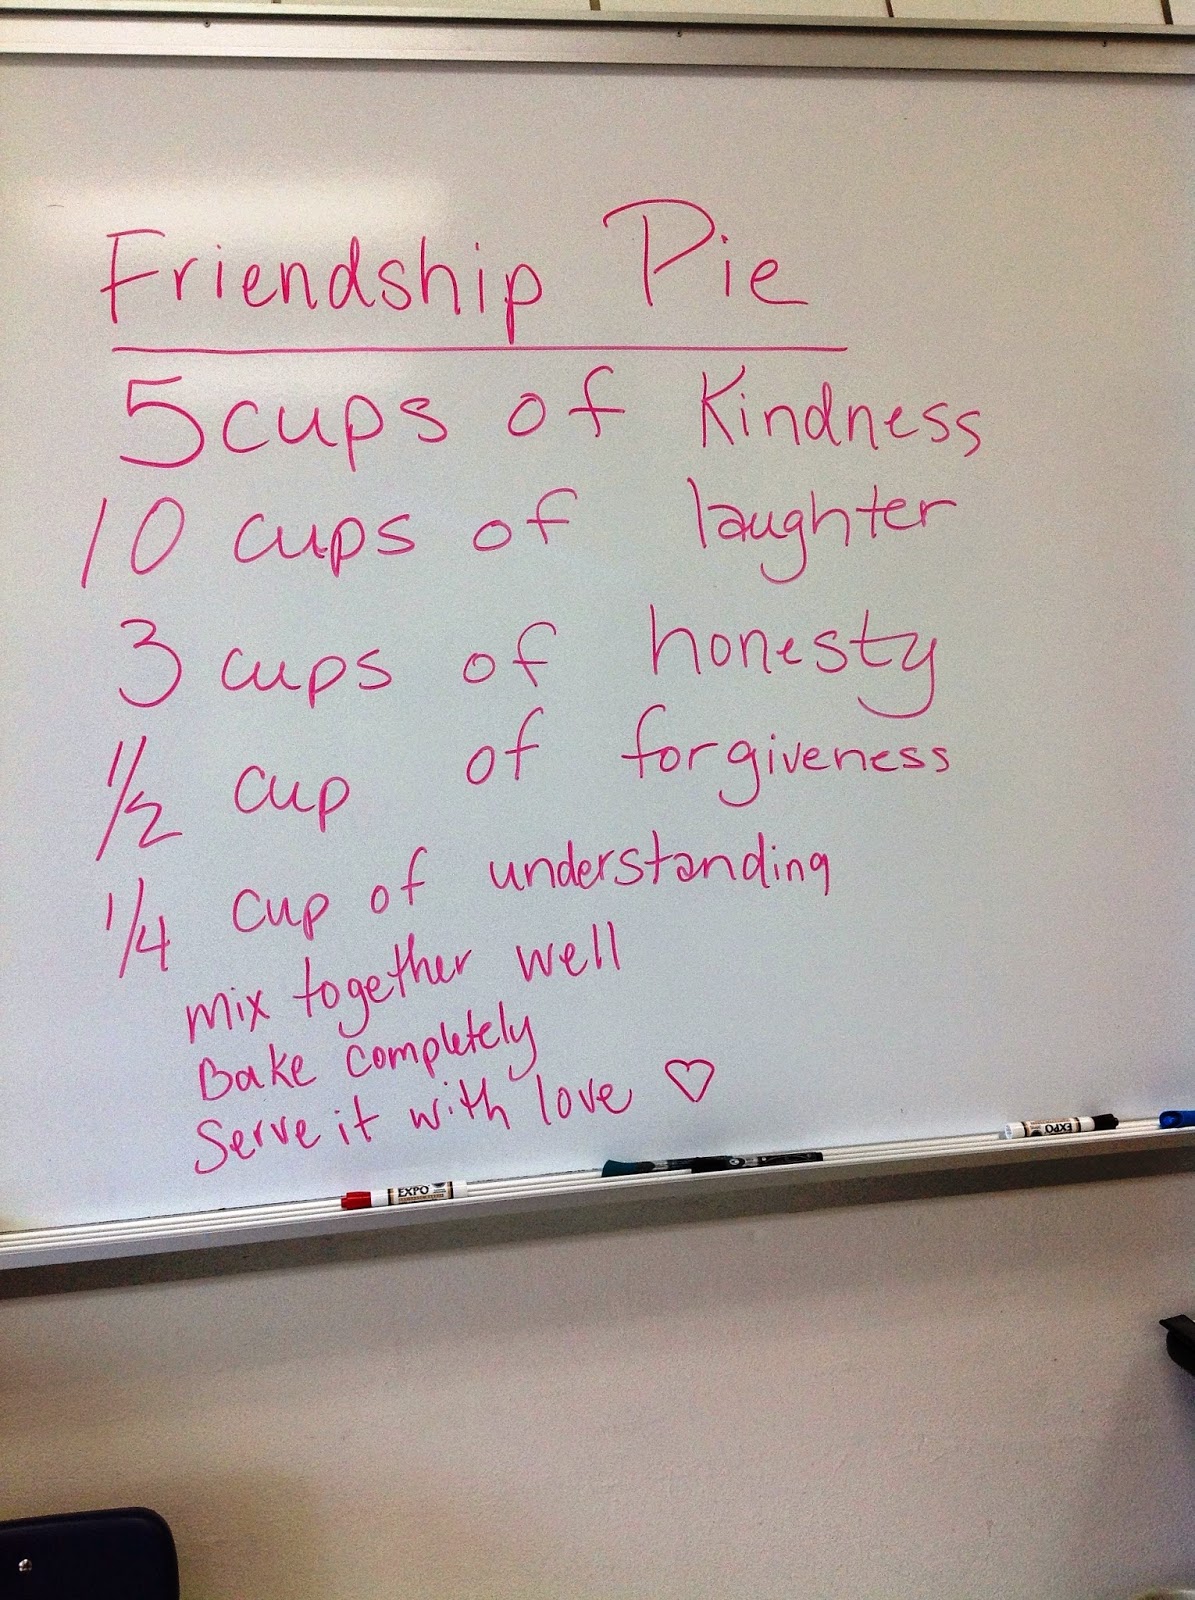 Friendship Pie
5 cups of Kindness
10 cups of laughter
3 cups of honesty
1/2 cup of forgiveness
1/4 cup of understanding
mix together well
Bake completely
Serve it with love ♡
EXPO
EXPO